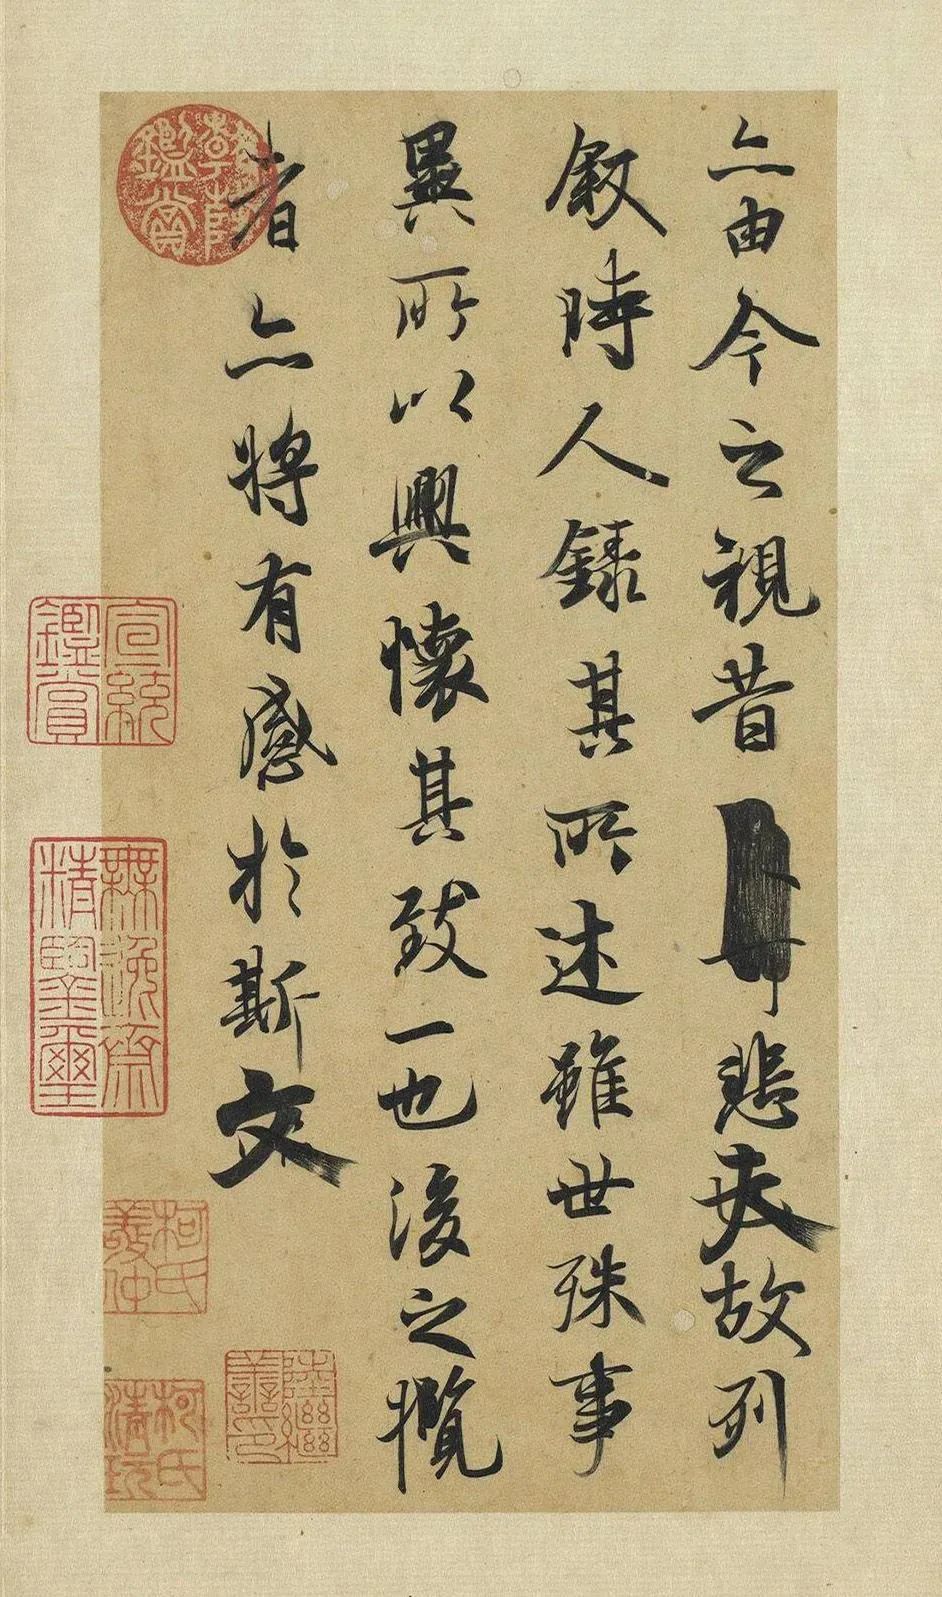 亦由今之視昔悲夫故列
叙時人録其所述雖世殊事
異所以興懷其致一也後之攬
者亦將有感於斯文
乾隆鑑賞
宣統鑑賞
無逸齋精鑒璽
柯氏敬仲
柯氏清玩
陸繼善印